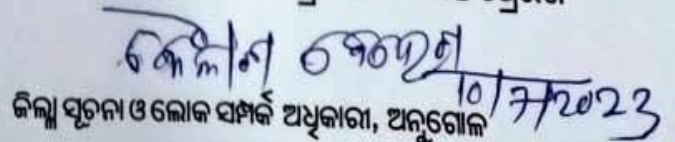 କୈଳାଶ
10/7/2023
ଜିଲ୍ଲା ସୂଚନା ଓ ଲୋକ ସମ୍ପର୍କ ଅଧିକାରୀ, ଅନୁଗୋଳ